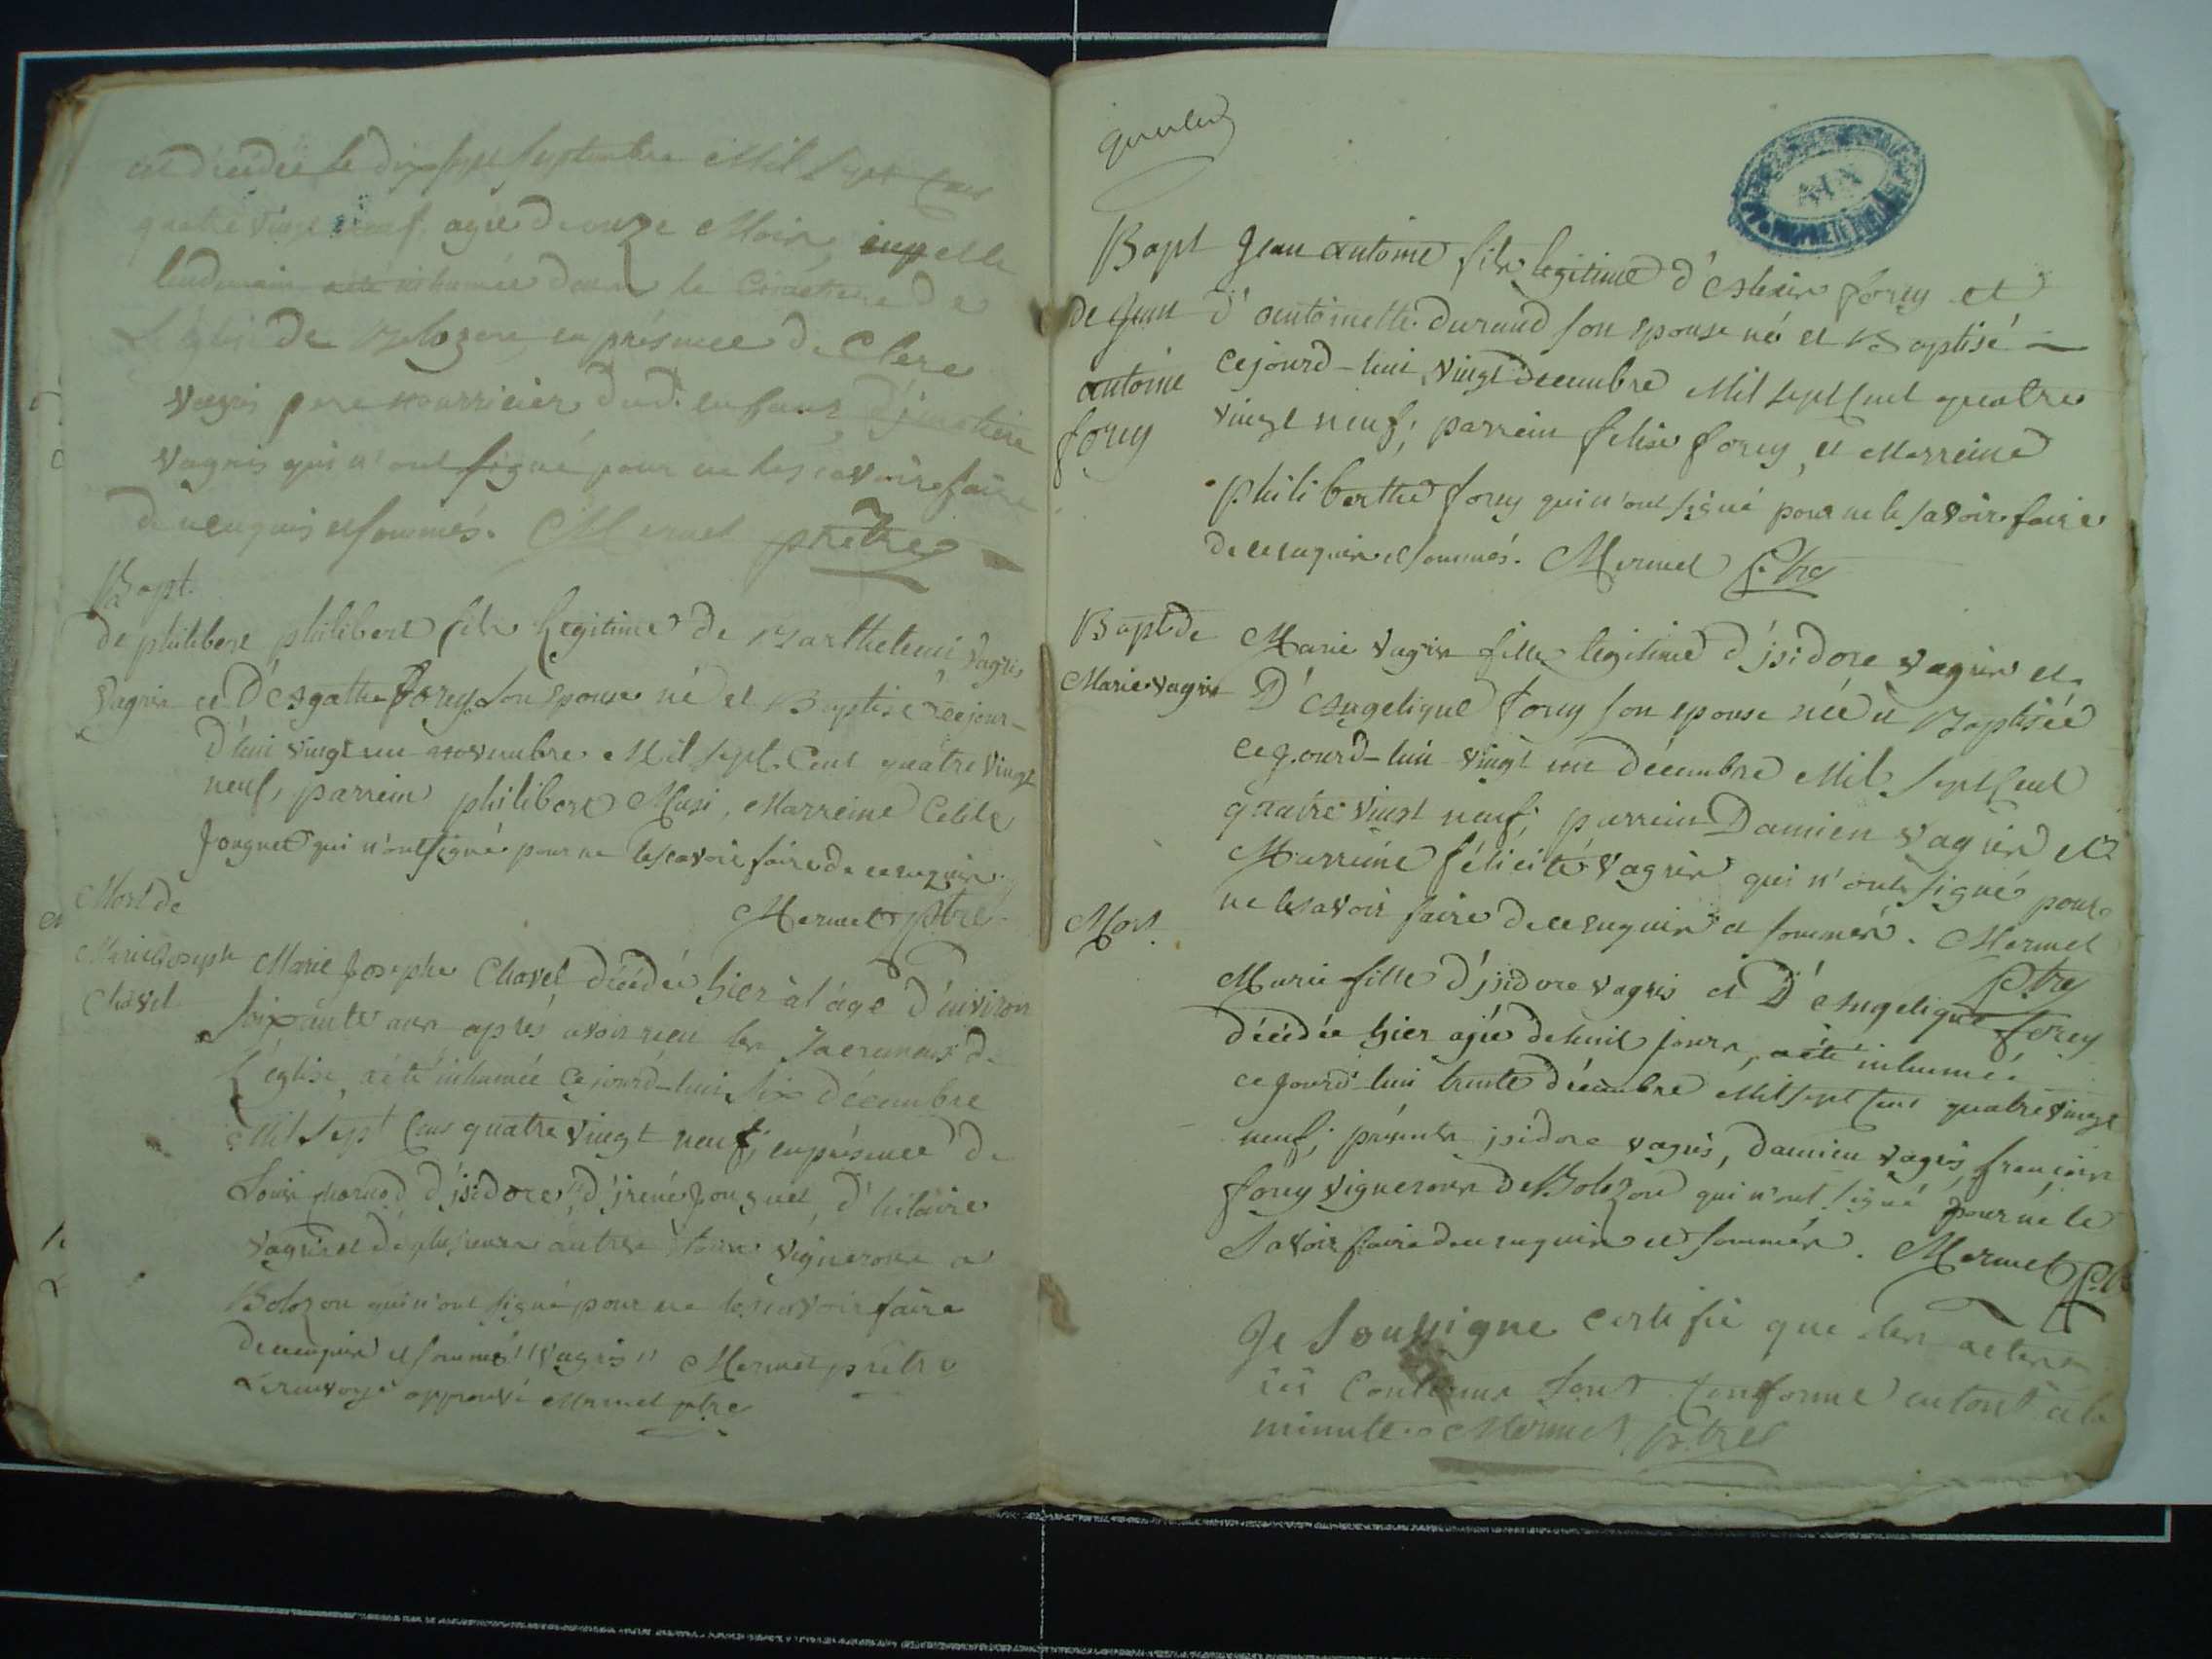 est décédée le dix sept septembre Mil sept Cent
quatre vingt neuf, agée de onze Mois, elle
lendemain a été inhumée dans le Cimetiere de
L'église de Bolozon, en présence de Clere
vagris pere nourricier dud. enfant,
vagris qui n'ont signé pour ne le scavoir faire
de ce enquis et sommés. Mermet prêtre
Bapt.
de philibert
vagris
philibert fils legitime de Barthelemi vagris
et D'Agathe forey son epouse né et Baptisé cejour-
d'hui vingt un novembre Mil sept Cent quatre vingt
neuf, parrein philibert Musi, Marreine
Jouguet qui n'ont signé pour ne le scavoir faire de ce enquis.
Mermet ptre
Mort de
Marie Joseph
Chavel
Marie Josephe Chavel décédée hier à l'age d'environ
soixante ans après avoir reçu les sacremens de
L'église, a été inhumée cejourd-hui six décembre
Mil sept Cent quatre vingt neuf; en présence de
Louis d'isidore, d'irené Jouguet, d'hilaire
vagris et de plusieurs autres tous vignerons a
Bolozon qui n'ont signé pour ne le scavoir faire
de ce enquis et sommés "vagris" Mermet prêtre
Le renvoye approuvé Mermet ptre
Bapt
de Jean
antoine
forey
Jean antoine fils legitime d'Alexis forey et
d'antoinette durand son epouse né et Baptisé
cejourd-hui vingt decembre Mil sept Cent quatre
vingt neuf; parrein felix forey, et Marreine
philiberthe forey qui n'ont signé pour ne le savoir faire
de ce enquis et sommés. Mermet Ptre
Bapt de
Marie vagris
Marie vagris fille legitime d'isidore vagris et
D'Angelique forey son epouse née et Baptisée
cejourd-hui vingt un décembre Mil sept Cent
quatre vingt neuf; parrein Damien vagris et
Marreine félicité vagris qui n'ont signé pour
ne le savoir faire de ce enquis et sommés. Mermet
Ptre
Mort.
Marie fille d'isidore vagris et D'Angelique forey
décédée hier agée de huit jours, a été inhumée
cejourd-hui trente décembre Mil sept Cent quatre vingt
neuf; présents isidore vagris, damien vagris, françois
forey vignerons de Bolozon qui n'ont signé pour ne le
savoir faire de ce enquis et sommés. Mermet Ptre
Je soussigne certifie que les actes
ici Contenus sont Conforme en tout a la
minute. Mermet ptre